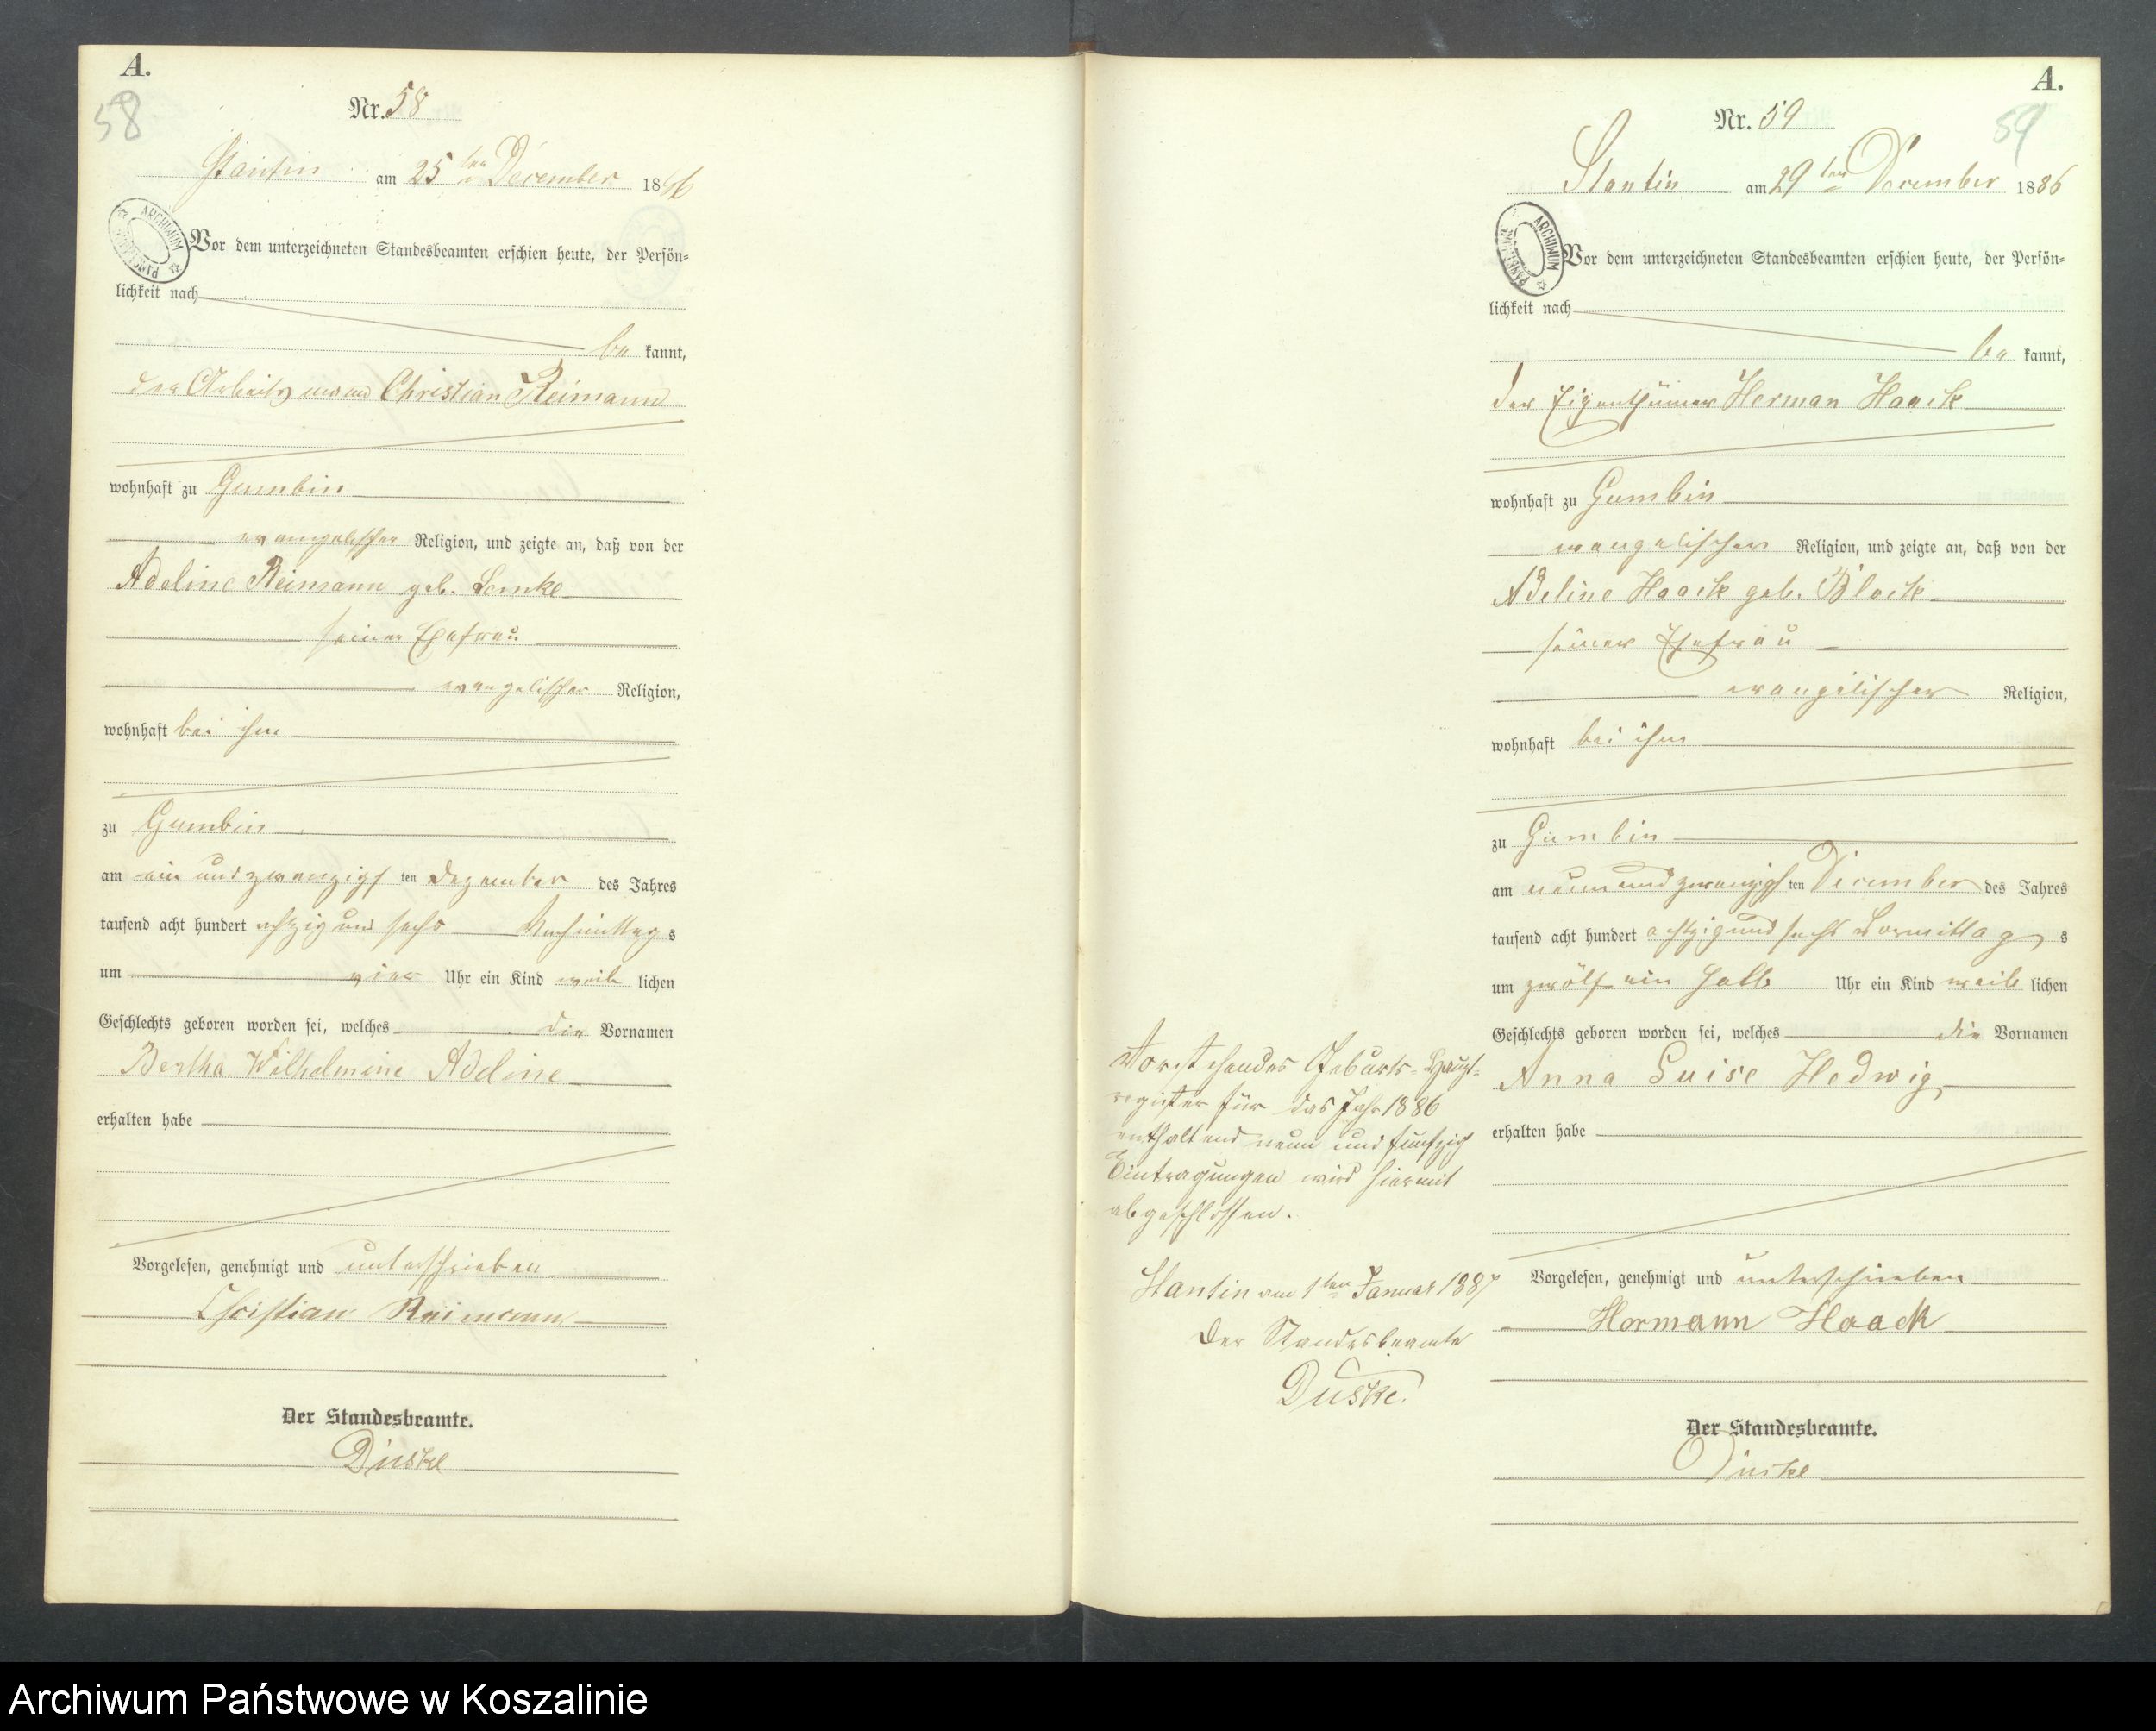 A.
58
Nr. 58
Stantin am 25ten December 1886
ARCHIWUM PAŃSTWOWE
Vor dem unterzeichneten Standesbeamten erschien heute, der Persön-
lichkeit nach
be kannt,
der Arbeitsmann Christian Reimann
wohnhaft zu Gumbin
evangelischer Religion, und zeigte an, daß von der
Adeline Reimann geb. Lemke
seiner Ehefrau
evangelischer Religion,
wohnhaft bei ihm
zu Gumbin
am ein und zwanzigs ten Dezember des Jahres
tausend acht hundert achtzig und sechs Nachmittag s
um vier Uhr ein Kind weib lichen
Geschlechts geboren worden sei, welches die Vornamen
Bertha Wilhelmine Adeline
erhalten habe
Vorgelesen, genehmigt und unterschrieben
Christian Reimann
Der Standesbeamte.
Duske
Vorstehendes Geburts-Haupt-
register für das Jahr 1886
enthaltend neun und fünfzig
Eintragungen wird hiermit
abgeschlossen.
Stantin am 1ten Januar 1887
Der Standesbeamte
Duske.
A.
59
Nr. 59
Stantin am 29ten December 1886
ARCHIWUM PAŃSTWOWE
Vor dem unterzeichneten Standesbeamten erschien heute, der Persön-
lichkeit nach
be kannt,
der Eigenthümer Herman Haack
wohnhaft zu Gumbin
evangelischer Religion, und zeigte an, daß von der
Adeline Haack geb. Block
seiner Ehefrau
evangelischer Religion,
wohnhaft bei ihm
zu Gumbin
am neunundzwanzigs ten December des Jahres
tausend acht hundert achtzigundsechs Vormittag s
um zwölf ein halb Uhr ein Kind weib lichen
Geschlechts geboren worden sei, welches die Vornamen
Anna Luise Hedwig
erhalten habe
Vorgelesen, genehmigt und unterschrieben
Hermann Haack
Der Standesbeamte.
Duske
Archiwum Państwowe w Koszalinie